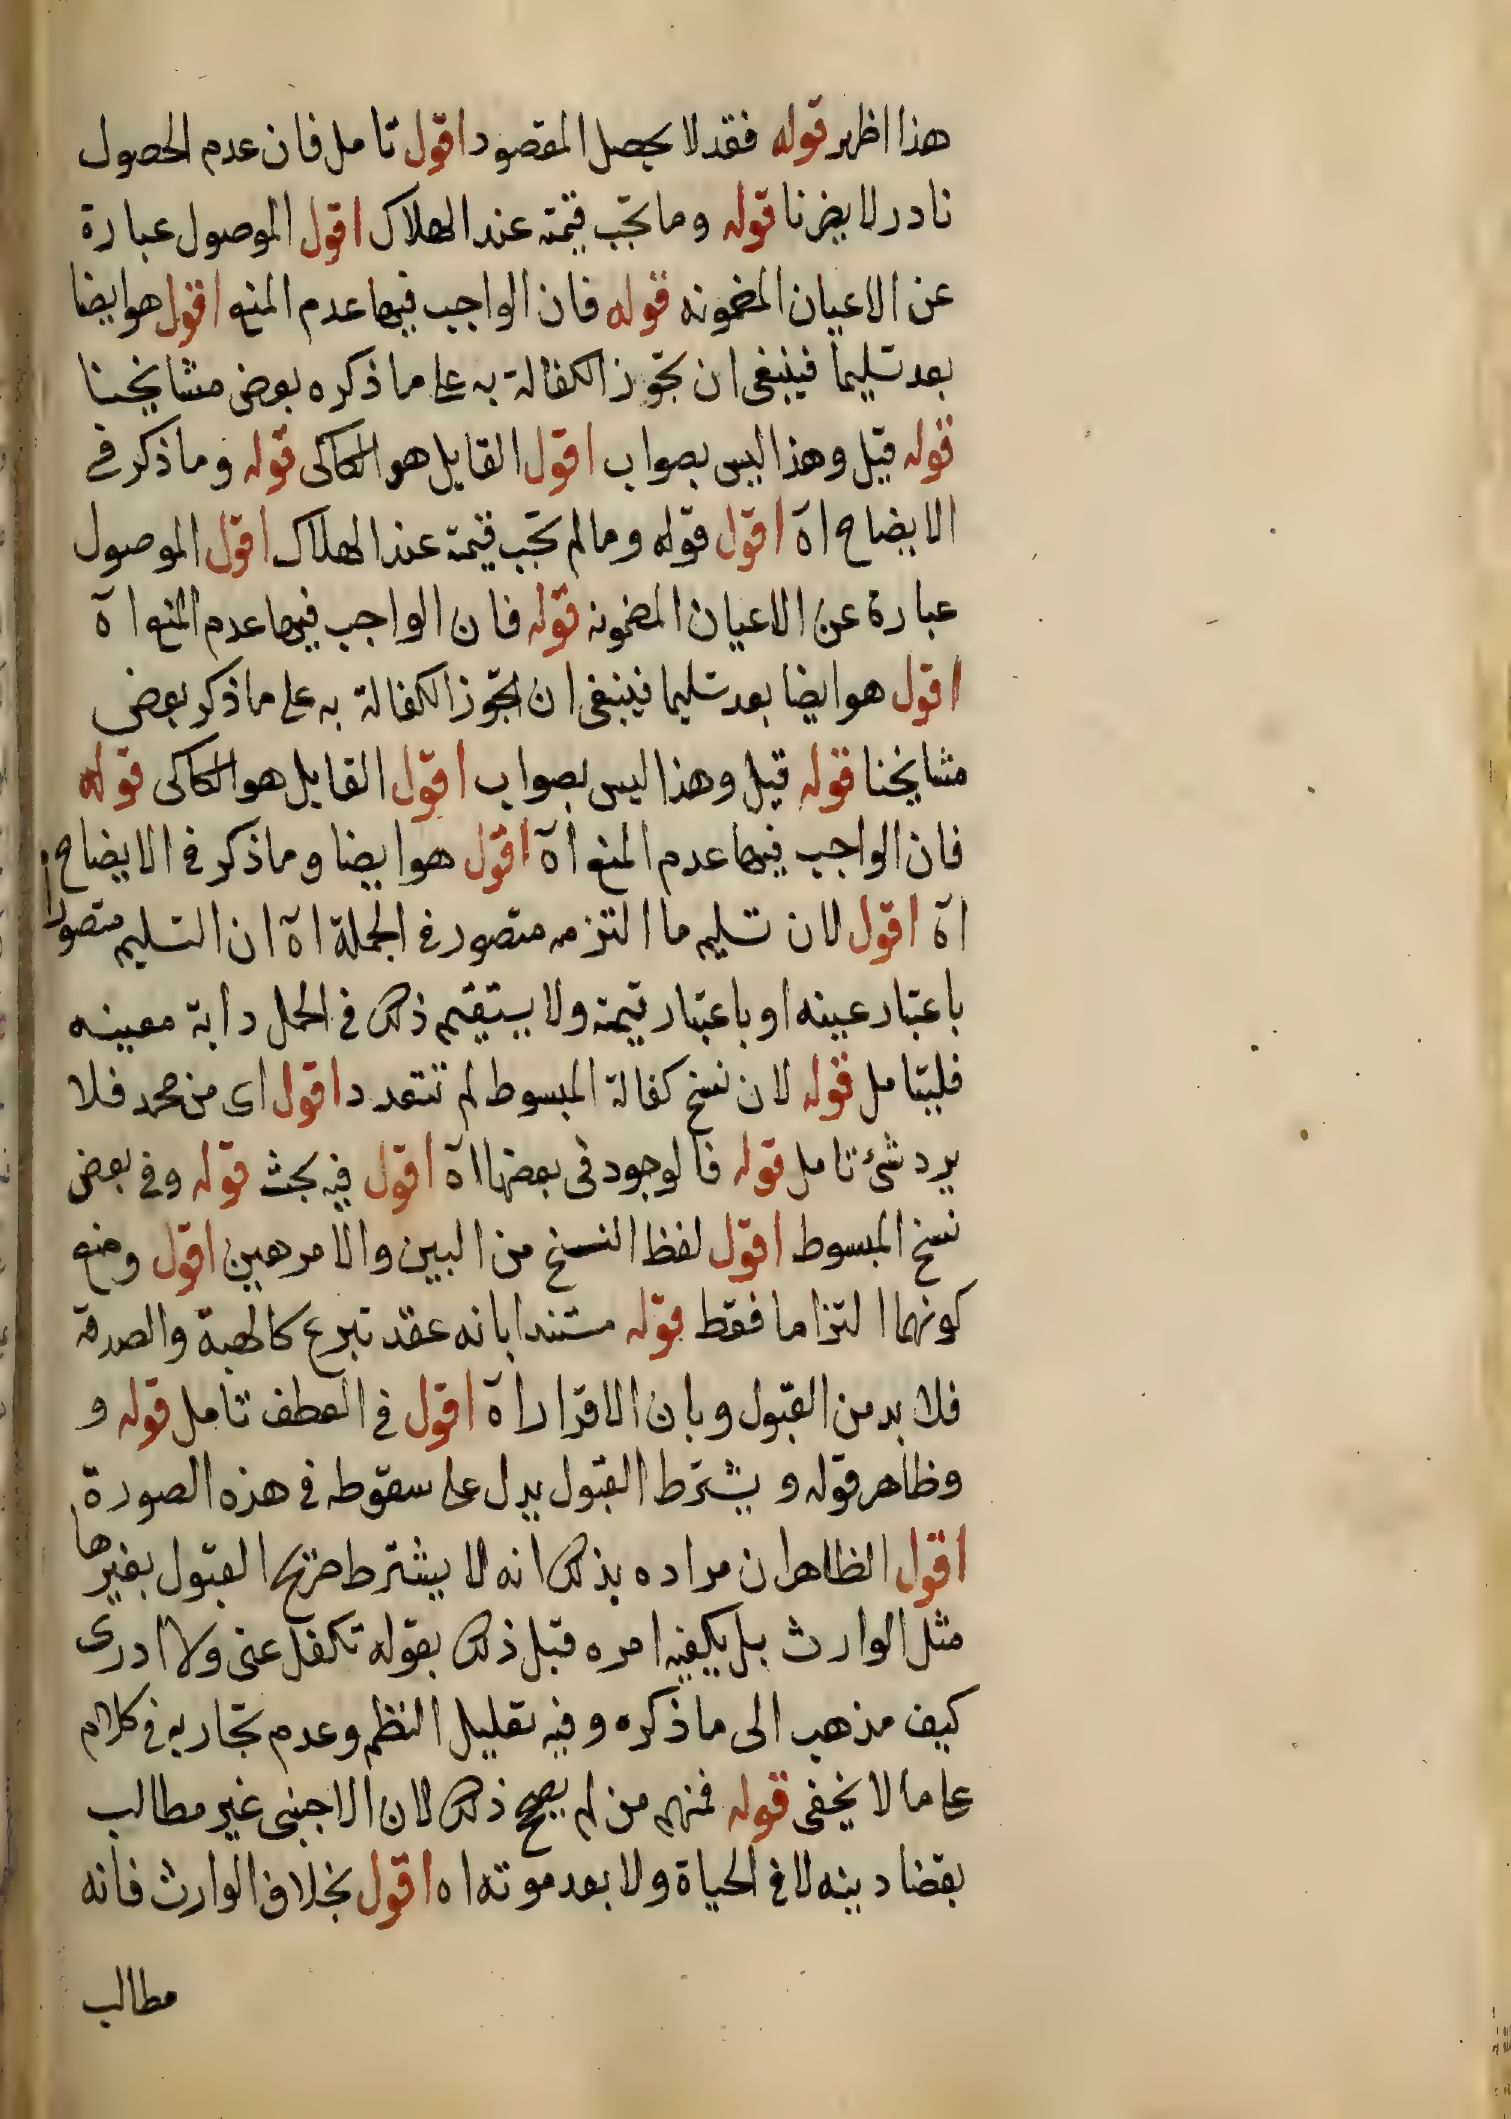 هذا اظهر قوله فقد لا يحصل المقصود اقول تامل فان عدم الحصول
نادر لا يضرنا قوله وما تجب قيمته عند الهلاك اقول الموصول عبارة
عن الاعيان المضمونه قوله فان الواجب فيها عدم المنع اقول هو ايضا
بعد تسليما فينبغى ان تجوز الكفالة به على ما ذكره بعض مشايخنا
قوله قيل وهذا ليس بصواب اقول القايل هو الكاكى قوله وما ذكر فى
الايضاح اه اقول قوله وما لم تجب قيمته عند الهلاك اقول الموصول
عبارة عن الاعيان المضمونه قوله فان الواجب فيها عدم المنع اه
اقول هو ايضا بعد تسليما فينبغى ان تجوز الكفالة به على ما ذكر بعض
مشايخنا قوله قيل وهذا ليس بصواب اقول القايل هو الكاكى قوله
فان الواجب فيها عدم المنع اه اقول هو ايضا وما ذكر فى الايضاح
اه اقول لان تسليم ما التزمه متصور فى الجملة اه ان التسليم متصور
باعتبار عينه او باعتبار قيمته ولا يستقيم ذلك فى الحمل دابة معينه
فليتامل قوله لان نسخ كفالة المبسوط لم تتعدد اقول اى من محمد فلا
يرد شئ تامل قوله فالوجود فى بعضها اه اقول فيه بحث قوله وفى بعض
نسخ المبسوط اقول لفظ النسخ من البين والامر هين اقول ومنع
كونهما التزاما فقط قوله مستندا بانه عقد تبرع كالهبة والصدقة
فلا بد من القبول وبان الاقرار اه اقول فى العطف تامل قوله و
وظاهر قوله و يشترط القبول يدل على سقوطه فى هذه الصورة
اقول الظاهر ان مراده بذلك انه لا يشترط صريح القبول بغيرها
مثل الوارث بل يكفيه امره قبل ذلك بقوله تكفل عنى ولا ادرى
كيف مذهب الى ما ذكره وفيه تقليل النظم وعدم تجاربه فى كلام
على ما لا يخفى قوله فمنهم من لم يصحح ذلك لان الاجنبى غير مطالب
بقضا دينه لا فى الحياة ولا بعد موته اه اقول بخلاف الوارث فانه
مطالب